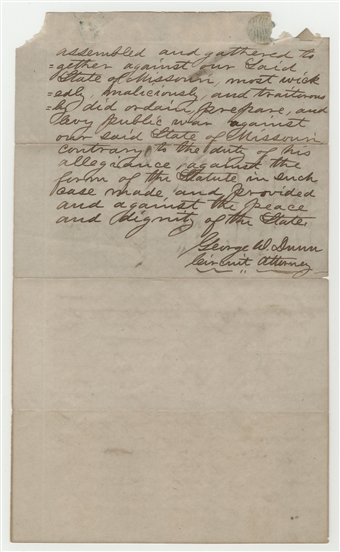 assembled and gathered to
=gether against our said
State of Missouri, most wick
=edly, maliciously, and traitorous
=ly did ordain, prepare, and
Levy public war against
our said State of Missouri
contrary to the duty of his
allegiance, against the
form of the Statute in such
case made and provided
and against the peace
and dignity of the State.
George W. Dunn
Circuit Attorney